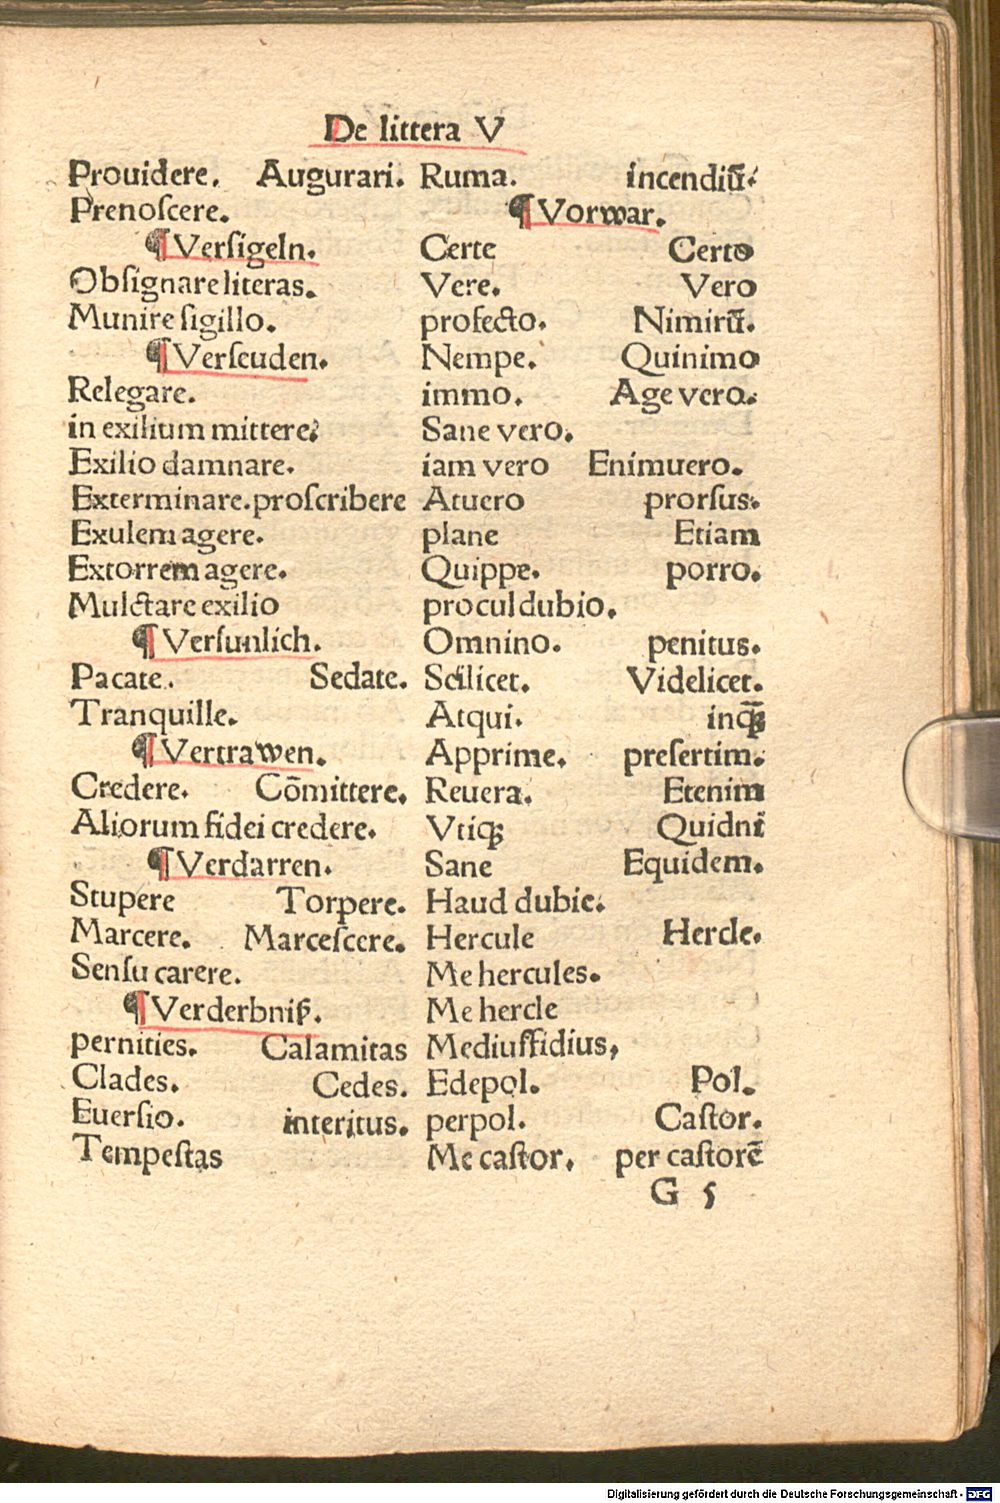 De littera V
Prouidere. Augurari.
Prenoſcere.
¶ Verſigeln.
Obſignare literas.
Munire ſigillo.
¶ Verſeuden.
Relegare.
in exilium mittere.
Exilio damnare.
Exterminare. proſcribere
Exulem agere.
Extorrem agere.
Mulctare exilio
¶ Verſunlich.
Pacate. Sedate.
Tranquille.
¶ Vertrawen.
Credere. Cōmittere.
Aliorum fidei credere.
¶ Verdarren.
Stupere Torpere.
Marcere. Marceſcere.
Senſu carere.
¶ Verderbniß.
pernities. Calamitas
Clades. Cedes.
Euerſio. interitus.
Tempeſtas
Ruma. incendiū.
¶ Vorwar.
Certe Certo
Vere. Vero
profecto. Nimirū.
Nempe. Quinimo
immo. Age vero.
Sane vero.
iam vero Enimuero.
Atuero prorſus.
plane Etiam
Quippe. porro.
procul dubio.
Omnino. penitus.
Scilicet. Videlicet.
Atqui. inꝙ̄
Apprime. preſertim.
Reuera. Etenim
Vtiqꝫ Quidni
Sane Equidem.
Haud dubie.
Hercule Hercle.
Me hercules.
Me hercle
Mediuſfidius,
Edepol. Pol.
perpol. Caſtor.
Me caſtor. per caſtorē
G 5
Digitalisierung gefördert durch die Deutsche Forschungsgemeinschaft - DFG